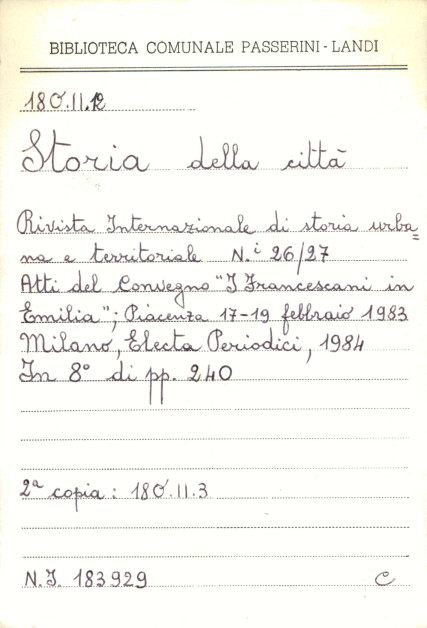 BIBLIOTECA COMUNALE PASSERINI - LANDI
18 O'.II.12
Storia della città
Rivista Internazionale di storia urba=
na e territoriale N.i 26/27
Atti del Convegno "I Francescani in
Emilia"; Piacenza 17-19 febbraio 1983
Milano, Electa Periodici, 1984
In 8° di pp. 240
2a copia: 18 O'.II.3
N.I. 183929 C